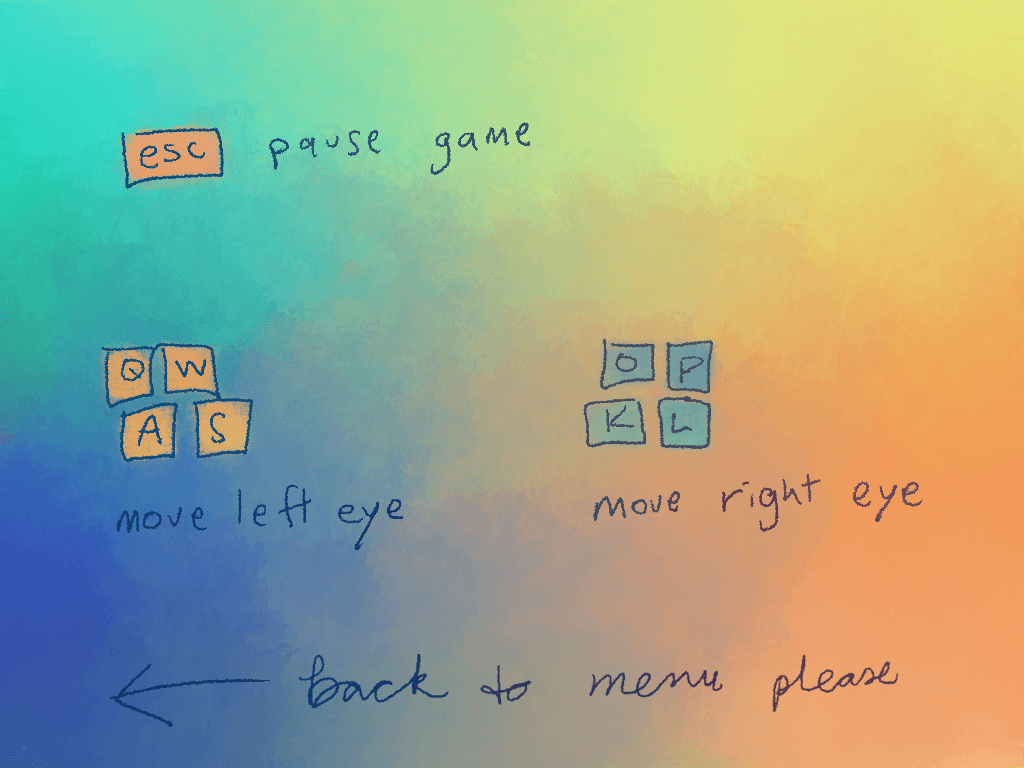 esc pause game
Q W O P
A S K L
move left eye move right eye
back to menu please